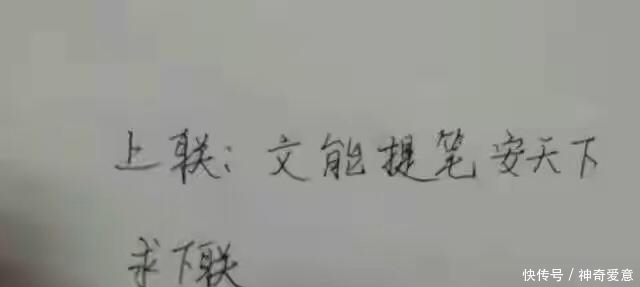 上联：文能提笔安天下
求下联
快传号／神奇爱意